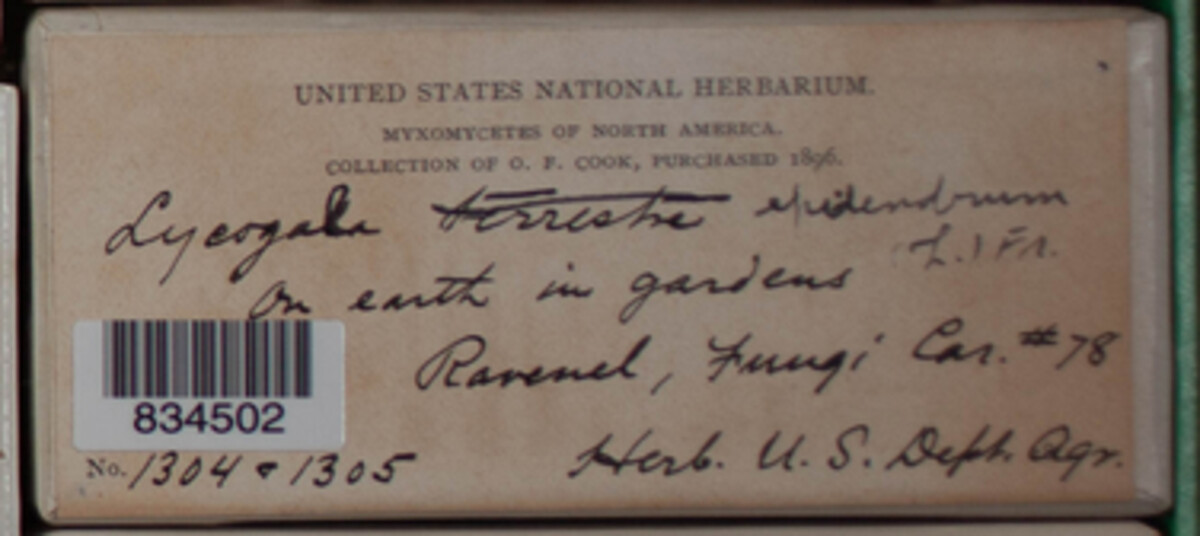 UNITED STATES NATIONAL HERBARIUM.
MYXOMYCETES OF NORTH AMERICA.
COLLECTION OF O. F. COOK, PURCHASED 1896.
Lycogala terrestre epidendrum
(L.) Fr.
On earth in gardens
Ravenel, Fungi Car. #78
834502
Herb. U. S. Dept. Agr.
No. 1304 & 1305